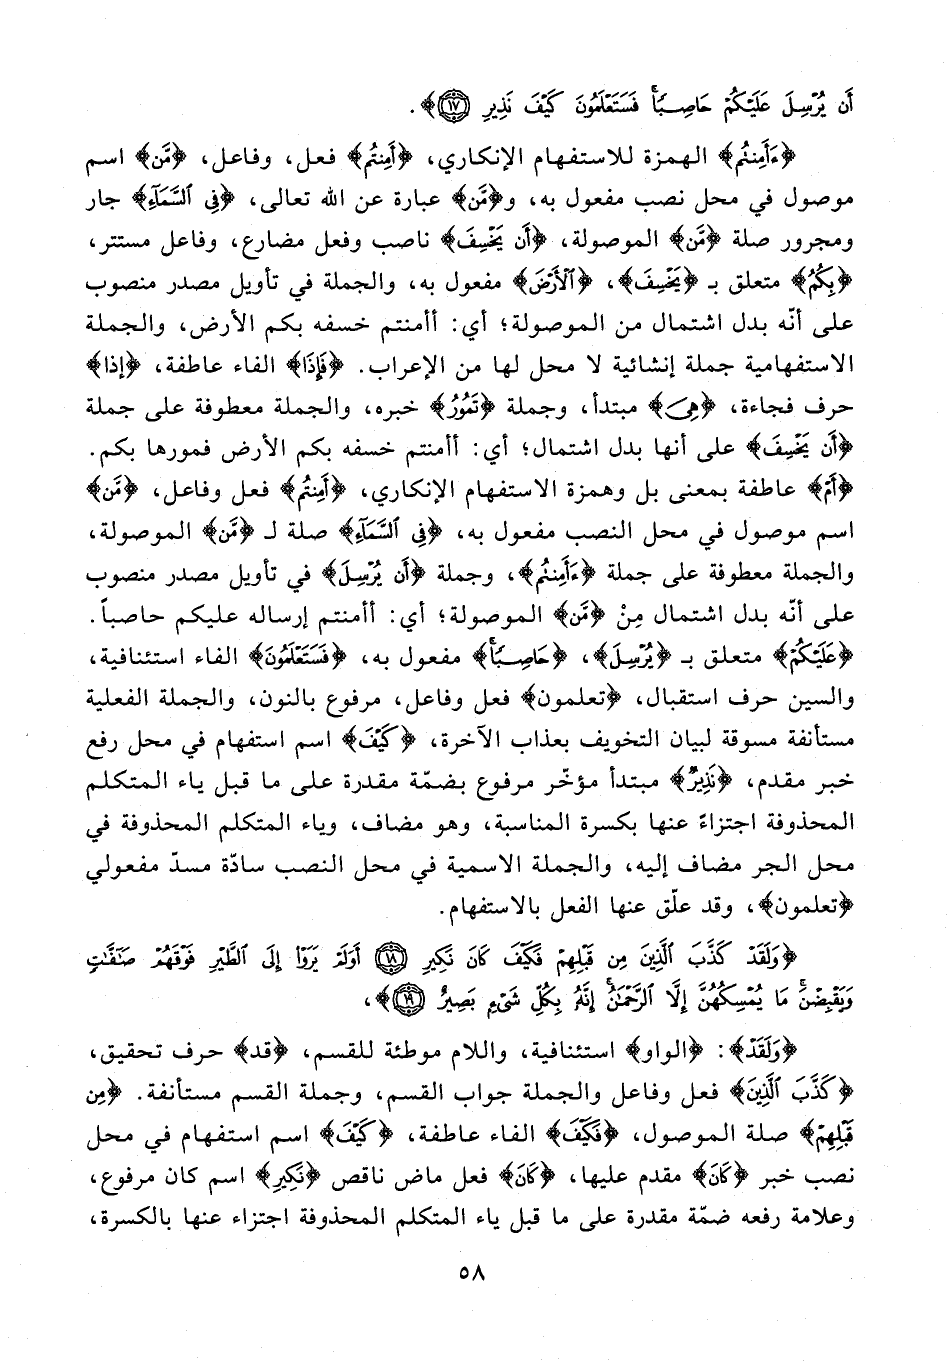 أَن يُرْسِلَ عَلَيْكُمْ حَاصِبًا ۖ فَسَتَعْلَمُونَ كَيْفَ نَذِيرِ ﴿١٧﴾﴾.
﴿ءَأَمِنتُم﴾ الهمزة للاستفهام الإنكاري، ﴿أَمِنتُم﴾ فعل، وفاعل، ﴿مَّن﴾ اسم
موصول في محل نصب مفعول به، و﴿مَّن﴾ عبارة عن الله تعالى، ﴿فِي ٱلسَّمَآءِ﴾ جار
ومجرور صلة ﴿مَّن﴾ الموصولة، ﴿أَن يَخْسِفَ﴾ ناصب وفعل مضارع، وفاعل مستتر،
﴿بِكُمُ﴾ متعلق بـ ﴿يَخْسِفَ﴾، ﴿ٱلْأَرْضَ﴾ مفعول به، والجملة في تأويل مصدر منصوب
على أنّه بدل اشتمال من الموصولة؛ أي: أأمنتم خسفه بكم الأرض، والجملة
الاستفهامية جملة إنشائية لا محل لها من الإعراب. ﴿فَإِذَا﴾ الفاء عاطفة، ﴿إذا﴾
حرف فجاءة، ﴿هِىَ﴾ مبتدأ، وجملة ﴿تَمُورُ﴾ خبره، والجملة معطوفة على جملة
﴿أَن يَخْسِفَ﴾ على أنها بدل اشتمال؛ أي: أأمنتم خسفه بكم الأرض فمورها بكم.
﴿أَمْ﴾ عاطفة بمعنى بل وهمزة الاستفهام الإنكاري، ﴿أَمِنتُم﴾ فعل وفاعل، ﴿مَّن﴾
اسم موصول في محل النصب مفعول به، ﴿فِي ٱلسَّمَآءِ﴾ صلة لـ ﴿مَّن﴾ الموصولة،
والجملة معطوفة على جملة ﴿ءَأَمِنتُم﴾، وجملة ﴿أَن يُرْسِلَ﴾ في تأويل مصدر منصوب
على أنّه بدل اشتمال مِنْ ﴿مَّن﴾ الموصولة؛ أي: أأمنتم إرساله عليكم حاصباً.
﴿عَلَيْكُمْ﴾ متعلق بـ ﴿يُرْسِلَ﴾، ﴿حَاصِبًا ۖ﴾ مفعول به، ﴿فَسَتَعْلَمُونَ﴾ الفاء استئنافية،
والسين حرف استقبال، ﴿تعلمون﴾ فعل وفاعل، مرفوع بالنون، والجملة الفعلية
مستأنفة مسوقة لبيان التخويف بعذاب الآخرة، ﴿كَيْفَ﴾ اسم استفهام في محل رفع
خبر مقدم، ﴿نَذِيرٌ﴾ مبتدأ مؤخّر مرفوع بضمّة مقدرة على ما قبل ياء المتكلم
المحذوفة اجتزاءً عنها بكسرة المناسبة، وهو مضاف، وياء المتكلم المحذوفة في
محل الجر مضاف إليه، والجملة الاسمية في محل النصب سادّة مسدّ مفعولي
﴿تعلمون﴾، وقد علّق عنها الفعل بالاستفهام.
﴿وَلَقَدْ كَذَّبَ ٱلَّذِينَ مِن قَبْلِهِمْ فَكَيْفَ كَانَ نَكِيرِ ﴿١٨﴾ أَوَلَمْ يَرَوْا۟ إِلَى ٱلطَّيْرِ فَوْقَهُمْ صَـٰٓفَّـٰتٍ
وَيَقْبِضْنَ ۚ مَا يُمْسِكُهُنَّ إِلَّا ٱلرَّحْمَـٰنُ ۚ إِنَّهُۥ بِكُلِّ شَىْءٍۭ بَصِيرٌ ﴿١٩﴾﴾،
﴿وَلَقَدْ﴾: ﴿الواو﴾ استئنافية، واللام موطئة للقسم، ﴿قد﴾ حرف تحقيق،
﴿كَذَّبَ ٱلَّذِينَ﴾ فعل وفاعل والجملة جواب القسم، وجملة القسم مستأنفة. ﴿مِن
قَبْلِهِمْ﴾ صلة الموصول، ﴿فَكَيْفَ﴾ الفاء عاطفة، ﴿كَيْفَ﴾ اسم استفهام في محل
نصب خبر ﴿كَانَ﴾ مقدم عليها، ﴿كَانَ﴾ فعل ماض ناقص ﴿نَكِيرِ﴾ اسم كان مرفوع،
وعلامة رفعه ضمّة مقدرة على ما قبل ياء المتكلم المحذوفة اجتزاء عنها بالكسرة،
٥٨